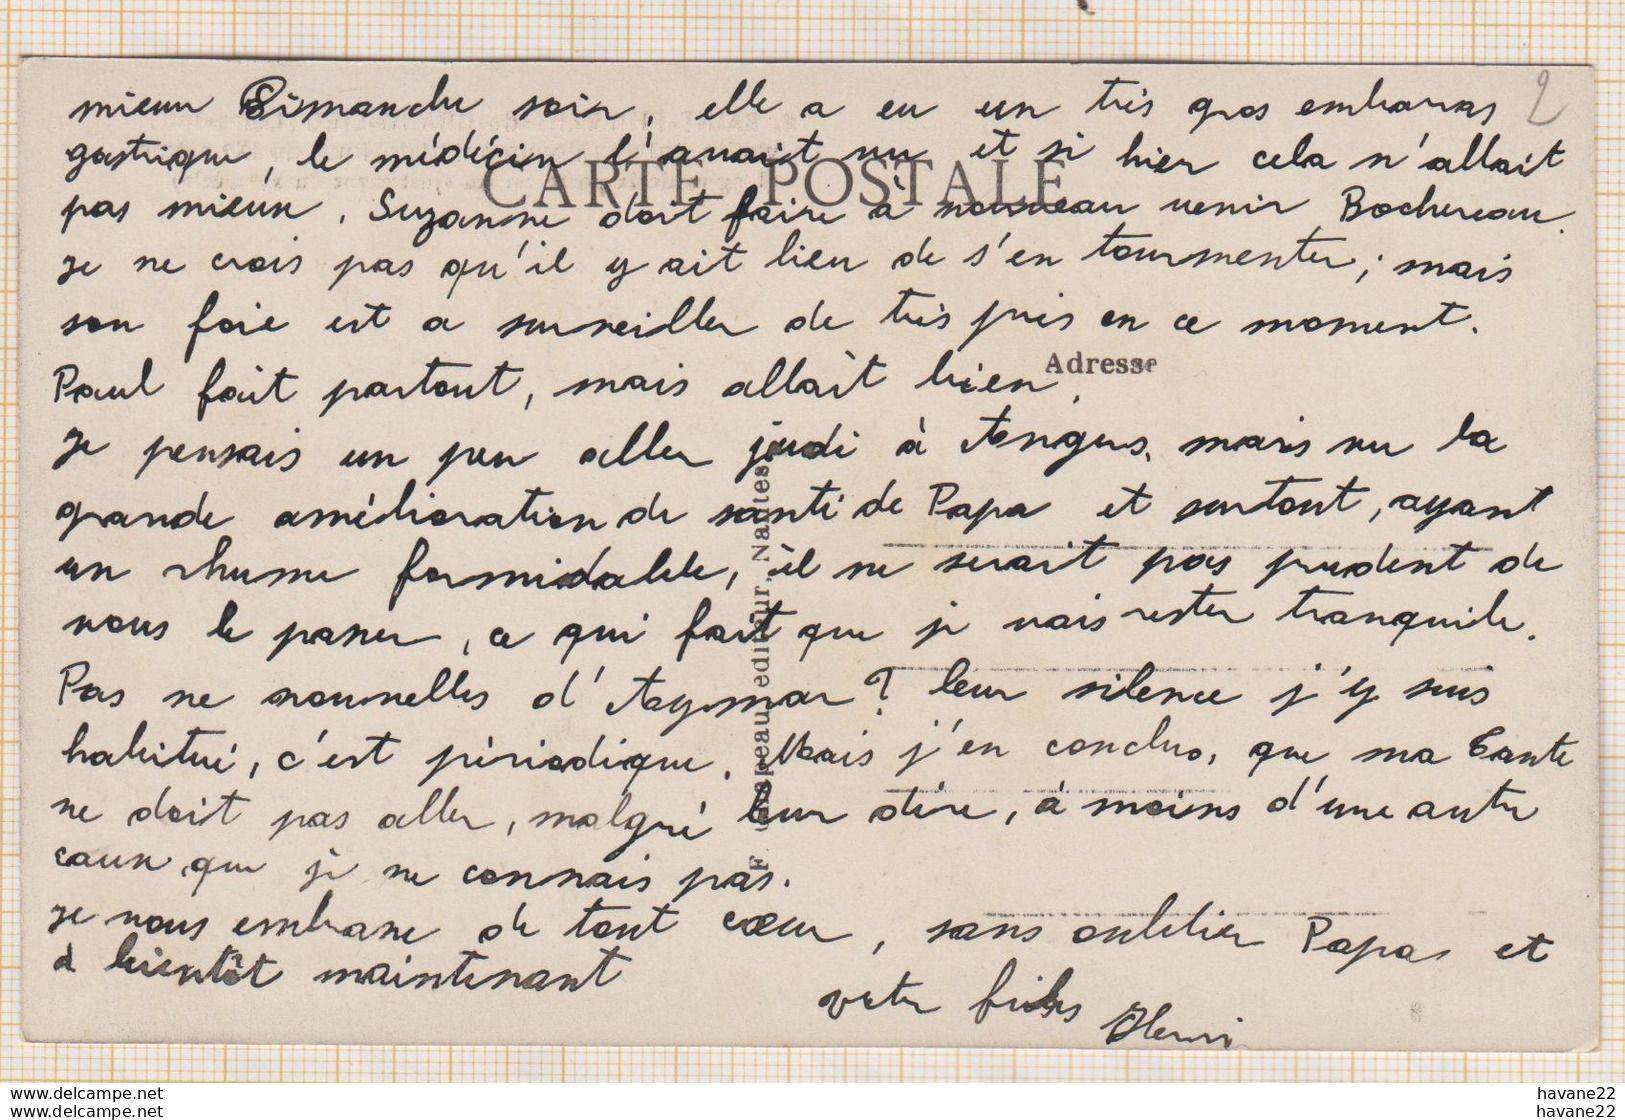 mieux Dimanche soir, elle a eu un très gros embarras
2
gastrique, le médécin l'avait vu et si hier cela n'allait
CARTE POSTALE
pas mieux, Suzanne doit faire à nouveau venir Bochereau.
Je ne crois pas qu'il y ait lieu de s'en tourmenter; mais
son foie est a surveiller de très près en ce moment.
Adresse
Paul fait partout, mais allait bien.
Je pensais un peu aller jeudi à Angers, mais vu la
grande amélioration de santé de Papa et surtout, ayant
un rhume formidable, il ne serait pas prudent de
vous le passer, ce qui fait que je vais rester tranquile.
Pas ne nouvelles d'Aymar? leur silence j'y suis
habitué, c'est périodique. Mais j'en conclus, que ma Tante
ne doit pas aller, malgré leur dire, à moins d'une autre
cause que je ne connais pas.
Je vous embrasse de tout cœur, sans oublier Papa et
à bientôt maintenant
votre fils Henri
F. Chapeau, editeur, Nantes
havane22
havane22
havane22
havane22